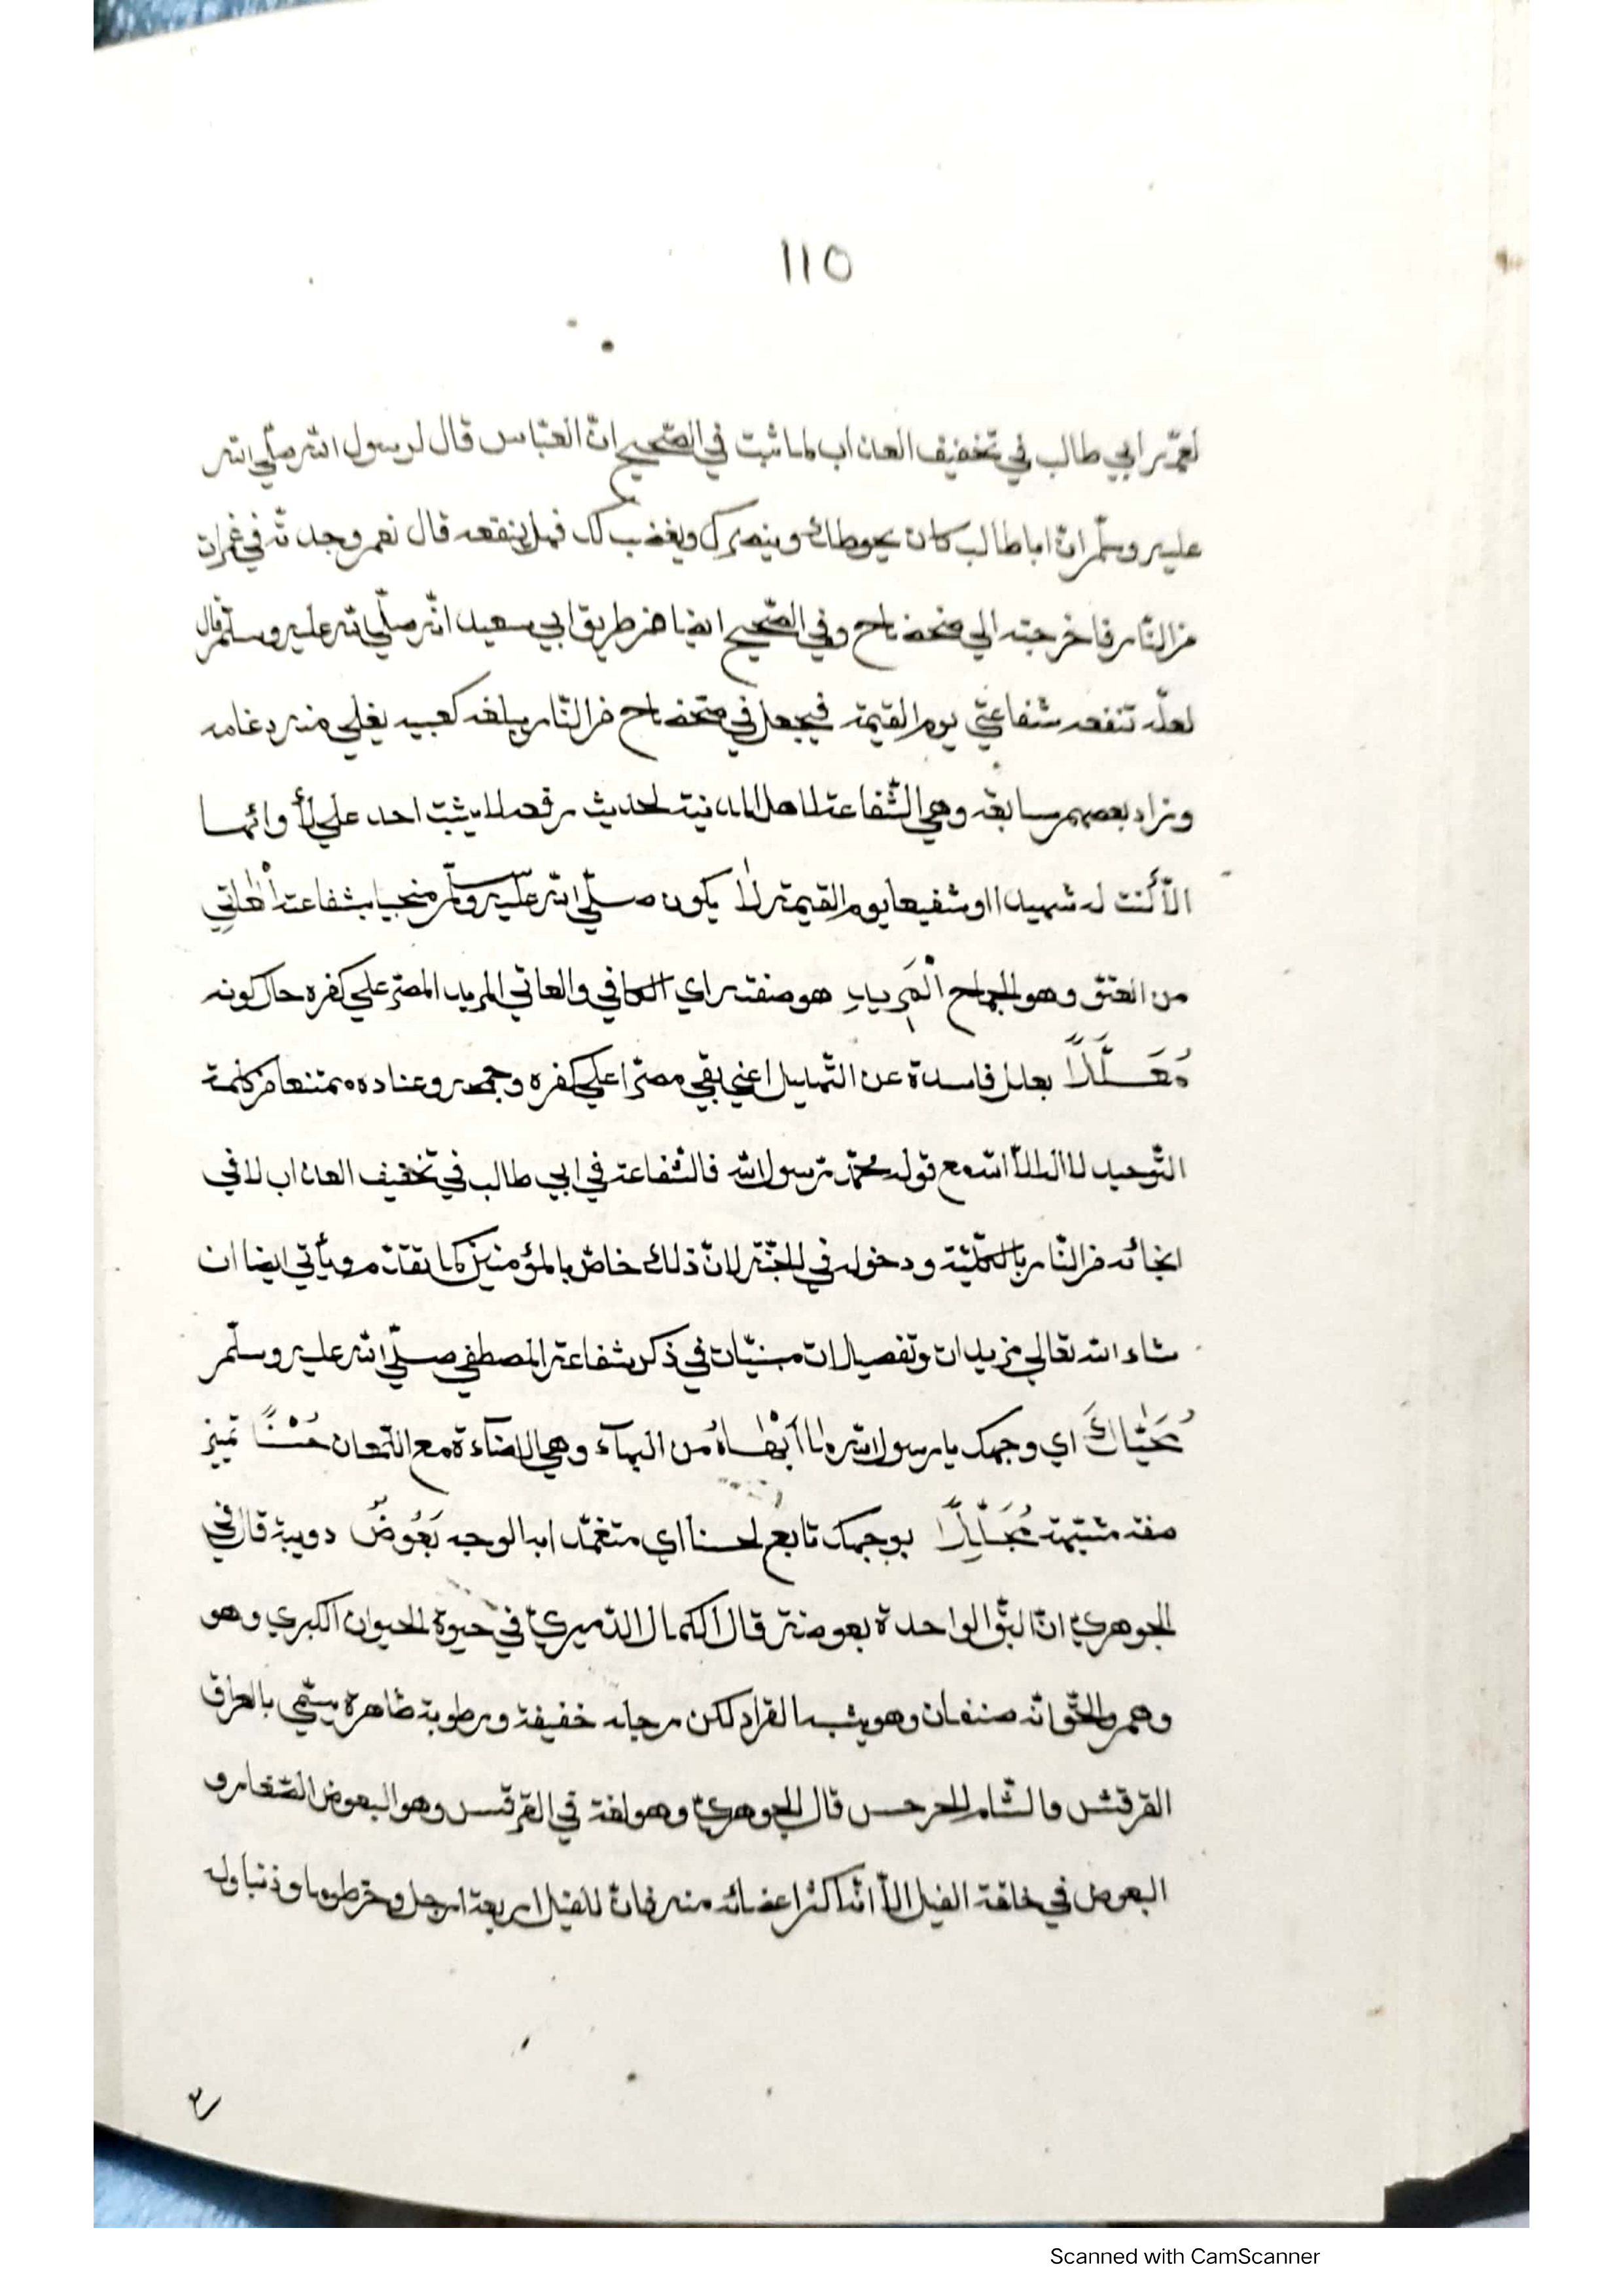 ١١٥
لعمّه ابي طالب في تخفيف العذاب لما ثبت في الصّحيح انّ العبّاس قال لرسول الله صلّي الله
عليه وسلّم انّ ابا طالب كان يحوطك وينصرك ويغضب لك فهل ينفعه قال نعم وجدته في غمرات
من النّار فاخرجته الي ضحضاح وفي الصّحيح ايضا من طريق ابي سعيد انّه صلّي الله عليه وسلّم قال
لعلّه تنفعه شفاعتي يوم القيمة فيجعل في ضحضاح من النّار يبلغ كعبيه يغلي منه دماغه
وزاد بعضهم سابعة وهي الشّفاعة لاهل المدينة لحديث رفعه لا يثبت احد علي لأوائها
الاّ كنت له شهيدا او شفيعا يوم القيمة لا يكون صلّي الله عليه وسلّم منجيا بشفاعته
من العتق وهو الجماح الْمَرِيدِ هو صفته اي الكافر والعاتي المريد المصرّ علي كفره حال كونه
مُعَلَّلاً بعلل فاسدة عن التّهليل اعني بقي مصرّا علي كفره وجحده وعناده ممتنعا من كلمة
التّوحيد لا اله الاّ الله مع قوله محمّد رسول الله فالشّفاعة في ابي طالب في تخفيف العذاب لا في
انجائه من النّار بالكلّيّة ودخوله في الجنّة لانّ ذلك خاصّ بالمؤمنين كما تقدّم ويأتي ايضا ان
شاء الله تعالي مزيدات وتفصيلات مبنيّات في ذكر شفاعة المصطفي صلّي الله عليه وسلّم
مُحَيَّاكَ اي وجهك يا رسول الله ما أَبْهَاهُ من البهآء وهي الاضآءة مع اللّمعان حُسْنًا تميز
صفة مشبّهة مُجَلِّلاً بوجهك تابع لحسنا اي متغمّدا به الوجه بَعُوضٌ دويبة قال في
الجوهريّ انّ البقّ الواحدة بعوضة قال الكمال الدّميريّ في حيوة الحيوان الكبري وهو
وهم والحقّ انّه صنفان وهو يشبه القراد لكن رجله خفيفة ورطوبة ظاهرة يسمّي بالعراق
القرقش والشّام الجرجس قال الجوهريّ وهو لغة في القرقس وهو البعوض الصّغار و
البعوض في خلقة الفيل الاّ انّه اكثر اعضائه منه فانّ للفيل اربعة ارجل وخرطوما وذنبا وله